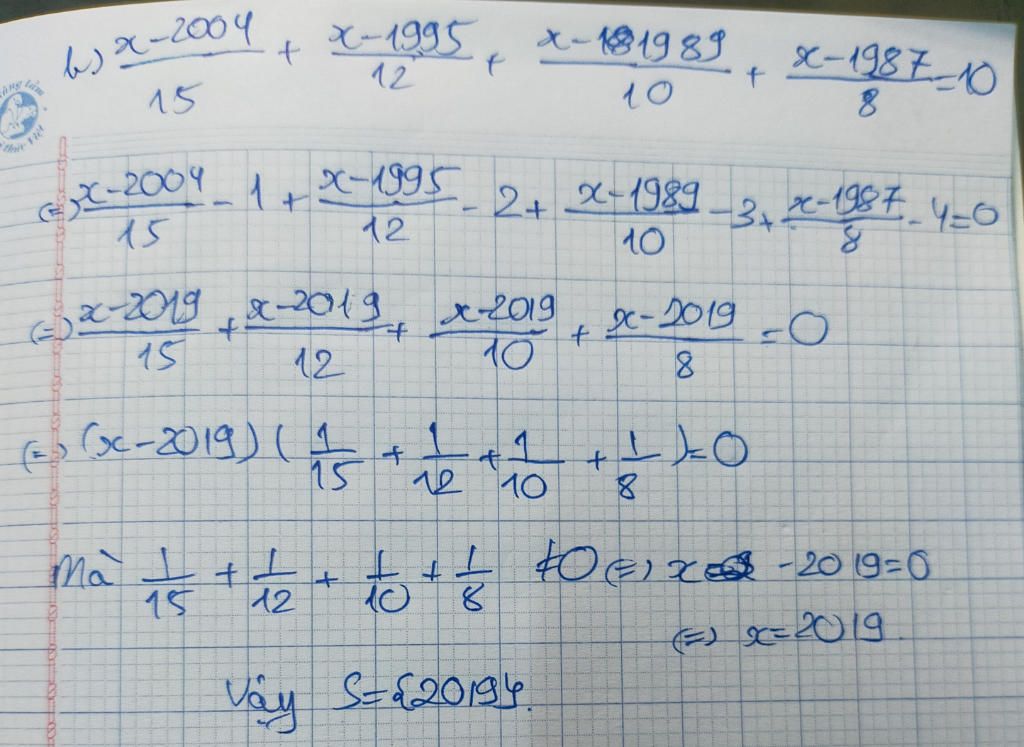 b) (x-2004)/15 + (x-1995)/12 + (x-1989)/10 + (x-1987)/8 = 10
(=) (x-2004)/15 - 1 + (x-1995)/12 - 2 + (x-1989)/10 - 3 + (x-1987)/8 - 4 = 0
(=) (x-2019)/15 + (x-2019)/12 + (x-2019)/10 + (x-2019)/8 = 0
(=) (x-2019) (1/15 + 1/12 + 1/10 + 1/8) = 0
Mà 1/15 + 1/12 + 1/10 + 1/8 ≠ 0 (=) x - 2019 = 0
(=) x = 2019.
Vậy S = {2019}.